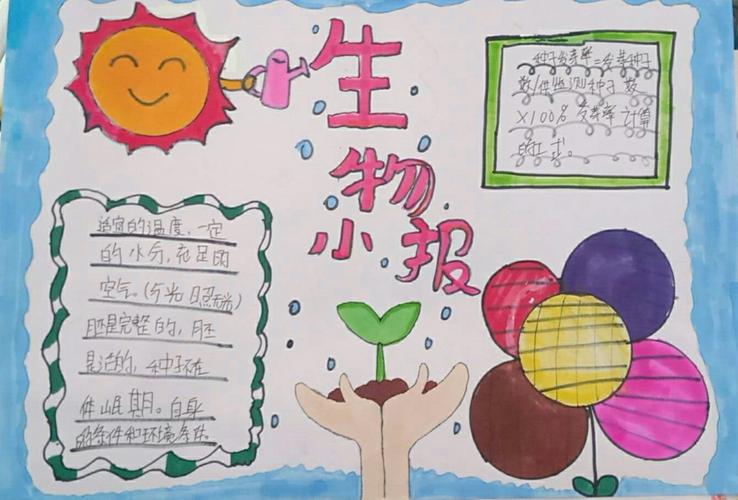 生
物
小报
种子发芽率=发芽种子
数/供监测种子数
×100% 发芽率计算
的 式。
适宜的温度,一定
的水分,充足的
空气。(与光照无关)
胚是完整的,胚
是活的,种子不在
休眠期。自身
的条件和环境条件。